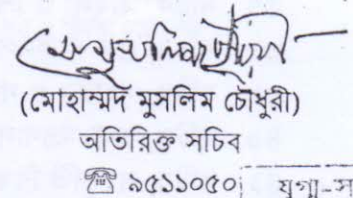 (মোহাম্মদ মুসলিম চৌধুরী)
অতিরিক্ত সচিব
☎ ৯৫১১০৫০
যুগ্ম-স